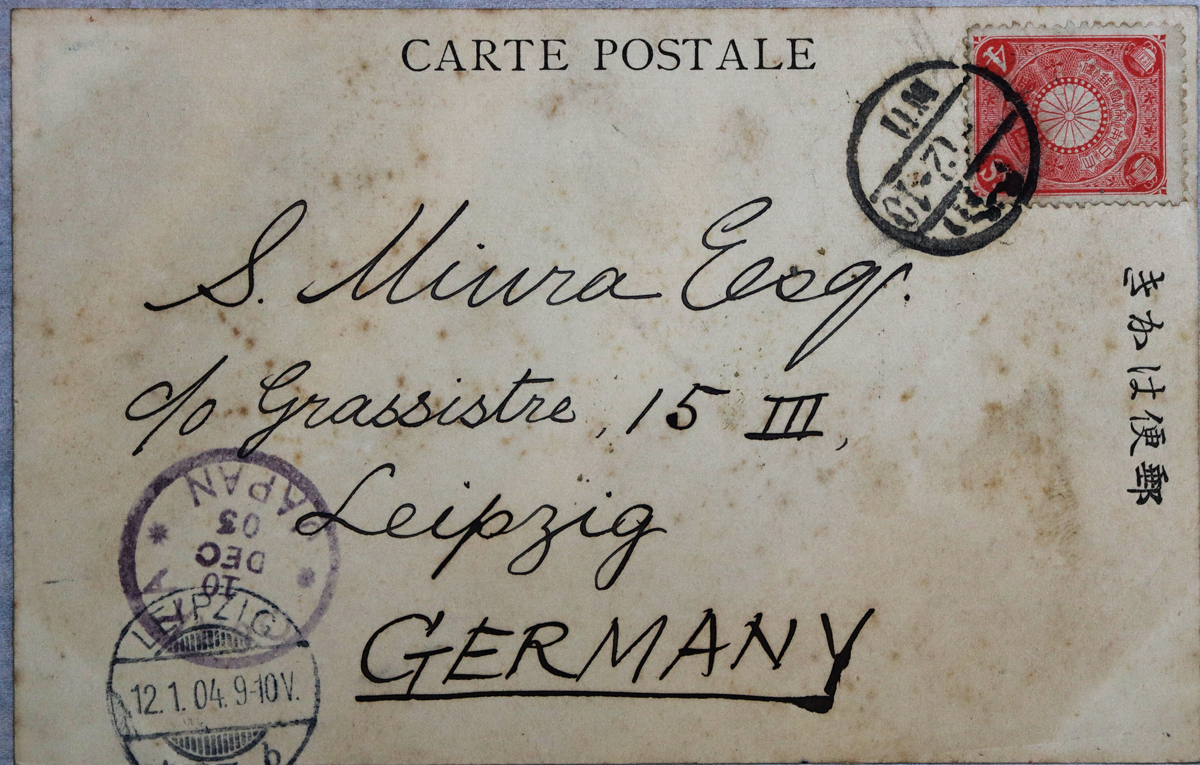 CARTE POSTALE
4
S
12-10
S. Miura Esq.
c/o Grassistre, 15 III,
Leipzig
GERMANY
郵便はかき
JAPAN
03
DEC
10
LEIPZIG
12.1.04.9-10V.
b